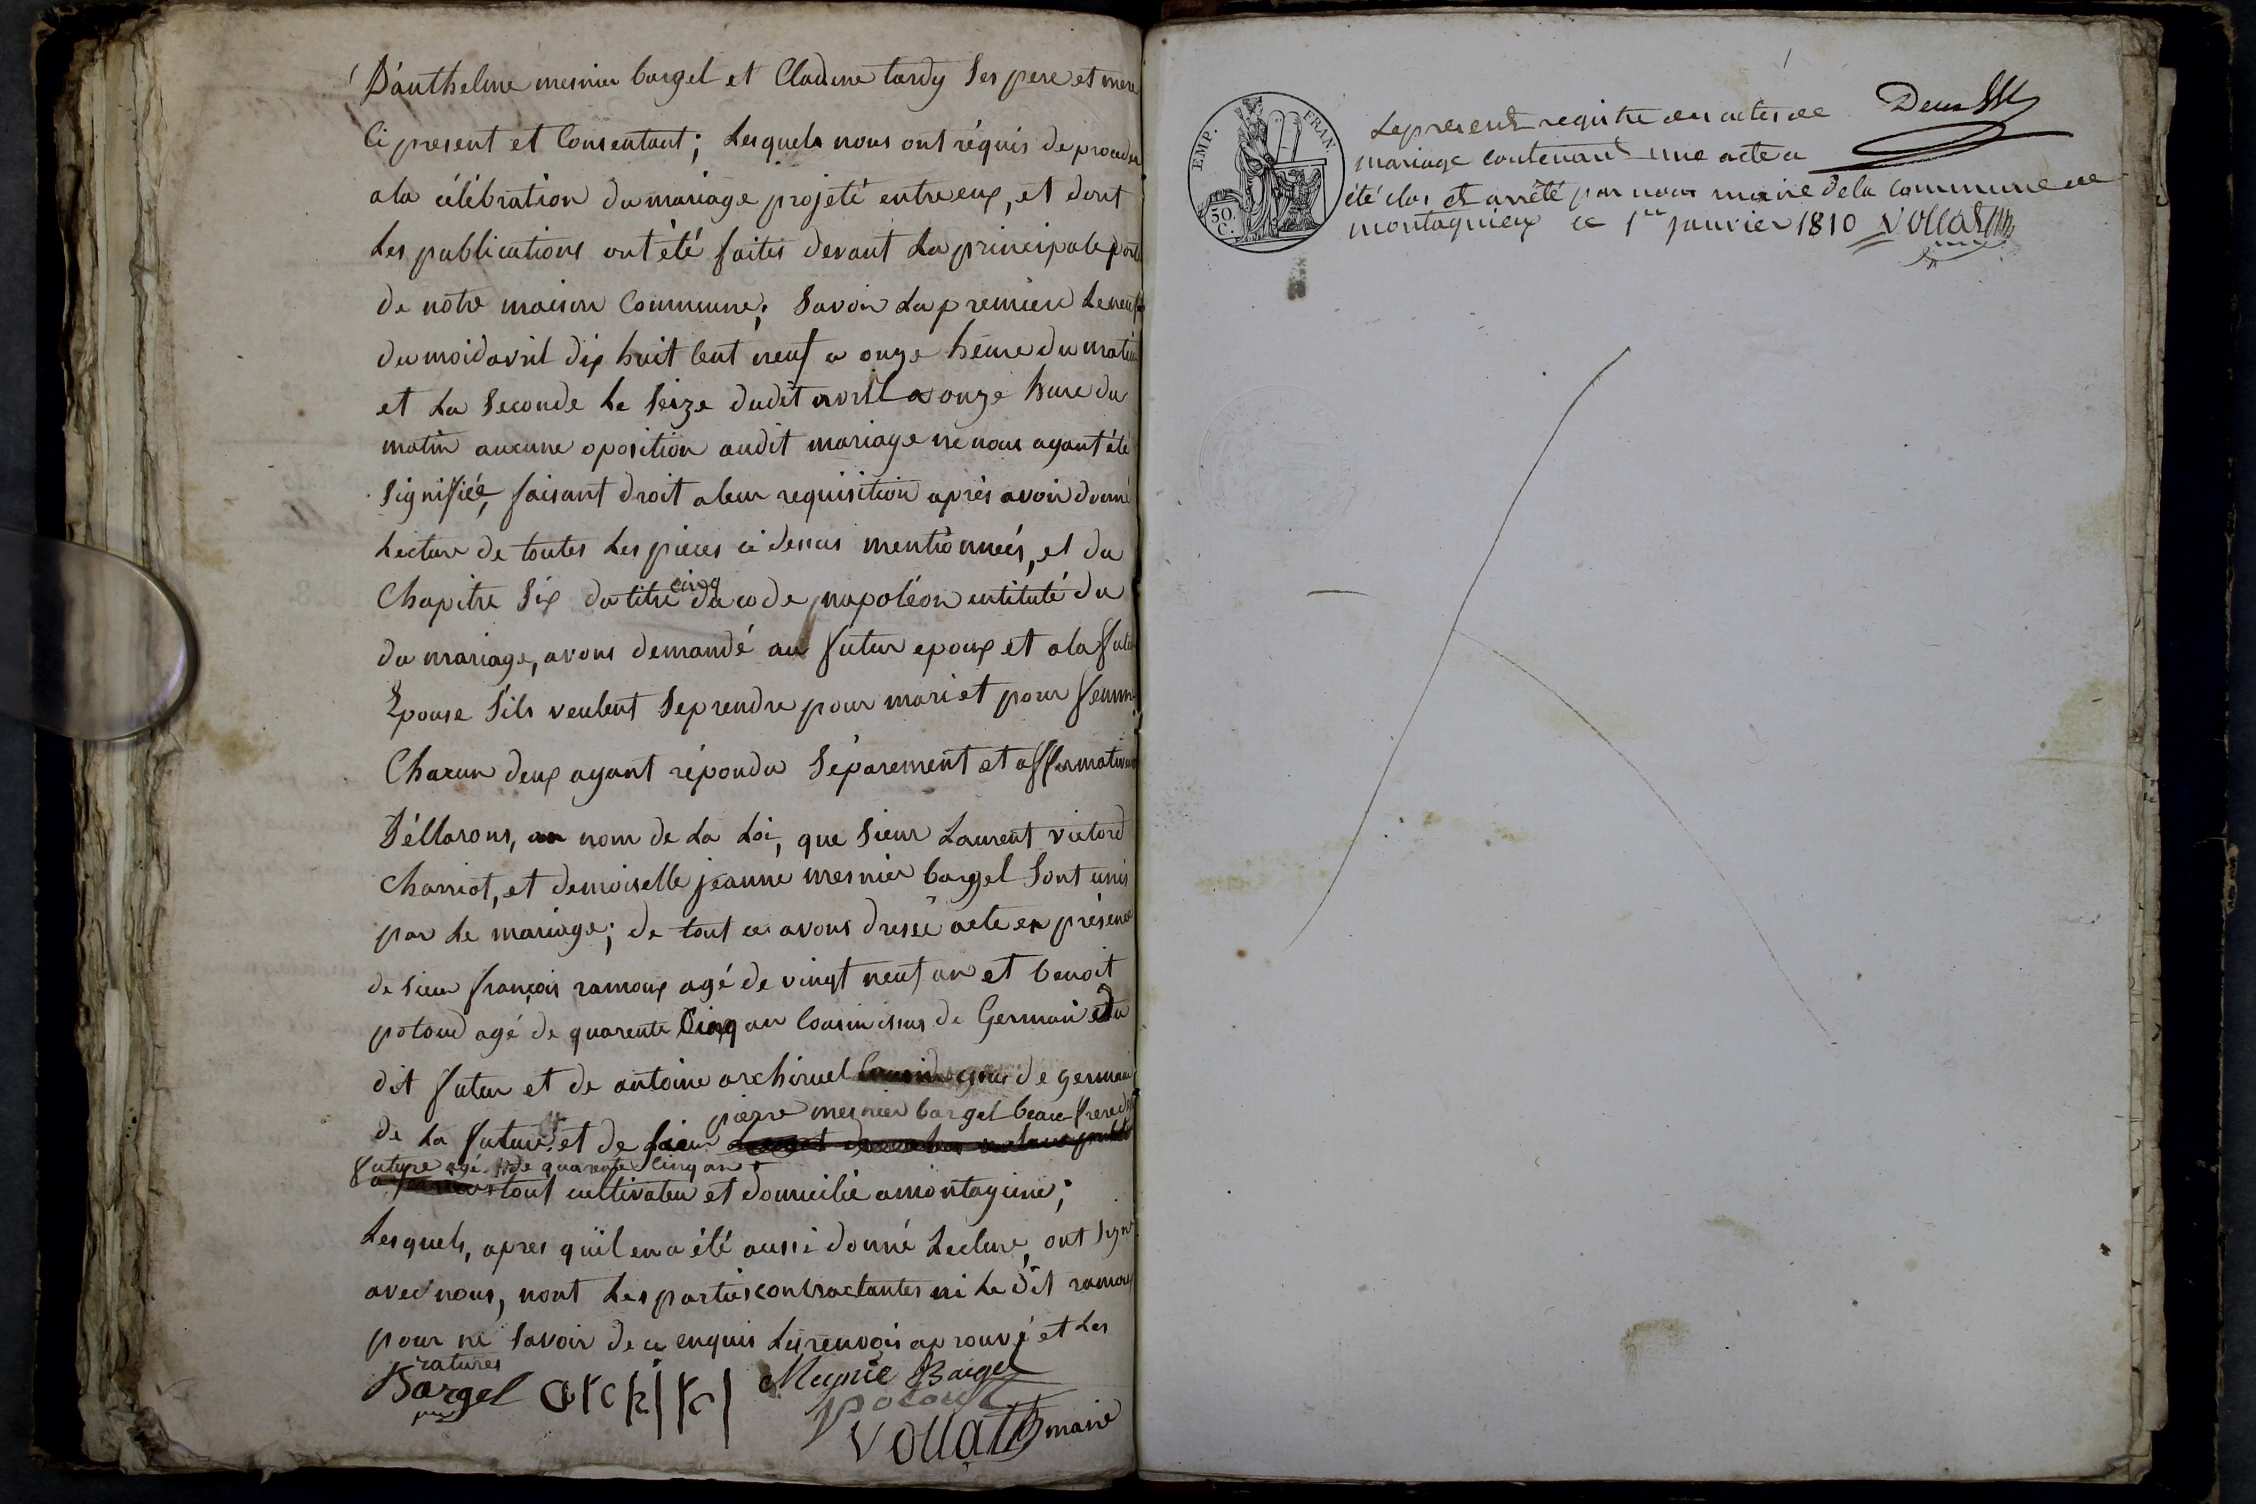 D'anthelme mesnier bargel et Claudine tardy ses pere et mere
Ci present et Consentant; Lesquels nous ont réquis de proceder
a la célébration du mariage projeté entre eux, et dont
Les publications ont été faites devant La principale porte
de notre maison Commune; Savoir La premiere Le neuf
du moi davril dix huit Cent neuf a onze heure du matin
et La Seconde Le Seize dudit avril a onze heure du
matin aucune oposition audit mariage ne nous ayant été
Signifiée, faisant droit a leur requisition après avoir donné
Lecture de toutes Les pieces ci dessus mentionnées, et du
Chapitre Six du titre cinq du code napoléon entitulé du
du mariage, avons demandé au futur epoux et a la future
Epouse S'ils veulent Se prendre pour mari et pour femme
Chacun deux ayant répondu Séparement et affirmativement
Déllarons, au nom de La Loi, que Sieur Laurent victord
Charriot, et demoiselle jeanne mesnier bargel Sont unis
par Le mariage; de tout ce avons dressé acte en présence
de Sieur françois ramoux agé de vingt neuf an et benoit
potoud agé de quarente Cinq an Cousin issus de Germain du
dit futur et de antoine archirel Cousin issus de germain
de La future et de Sieur pierre mesnier bargel beau frere de
future agé de quarente Cinq an
tout cultivateu et domicilié a montagnieu;
Lesquels, apres qu'il en a été aussi donné Lecture, ont Signé
avec nous, nont Les parties contractantes ni Le dit ramoux
pour ne Savoir de ce enquis Les renvois aprouvé et Les
ratures
Bargel Mesnie Bargel
potoud
Vollat maire
EMP. FRAN.
50. C.
Le present registre des actes de
mariage contenant une acte a
été clos et arrêté par nous maire de la Commune de
montagnieux ce 1er janvier 1810 Vollat